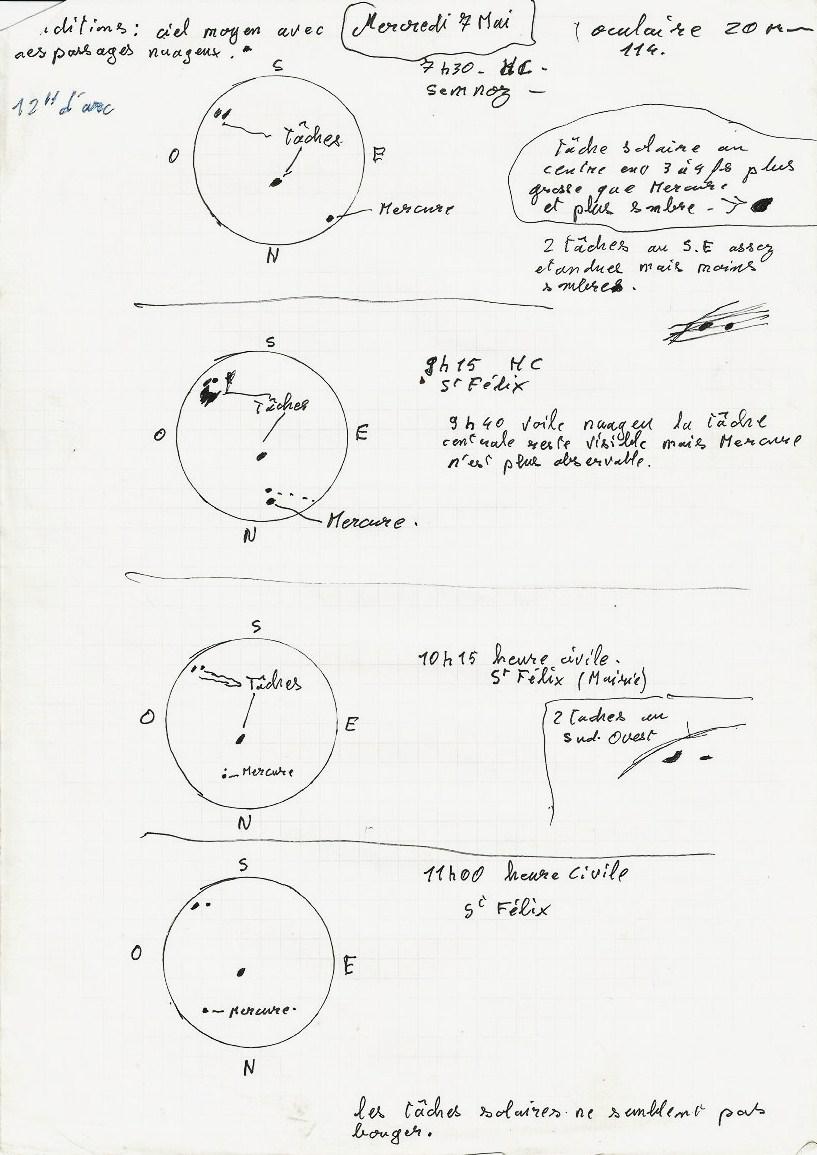 ditions : ciel moyen avec
des passages nuageux.
Mercredi 7 Mai
oculaire 20 mm
114.
12" d'arc
7h30 - HC -
Semnoz -
S
Tâches
O
E
Mercure
N
Tâche solaire au
centre env 3 à 4 fs plus
grosse que Mercure
et plus sombre - →
2 tâches au S.E assez
etendues mais moins
sombres.
S
9h15 HC
St Félix
Tâches
O
E
9h40 voile nuageu la tâche
centrale reste visible mais Mercure
n'est plus observable.
Mercure.
N
S
10h15 heure civile.
St Félix (Mairie)
Tâches
O
E
2 taches au
Sud. Ouest
Mercure
N
S
11h00 heure civile
St Félix
O
E
Mercure.
N
les tâches solaires ne semblent pas
bouger.